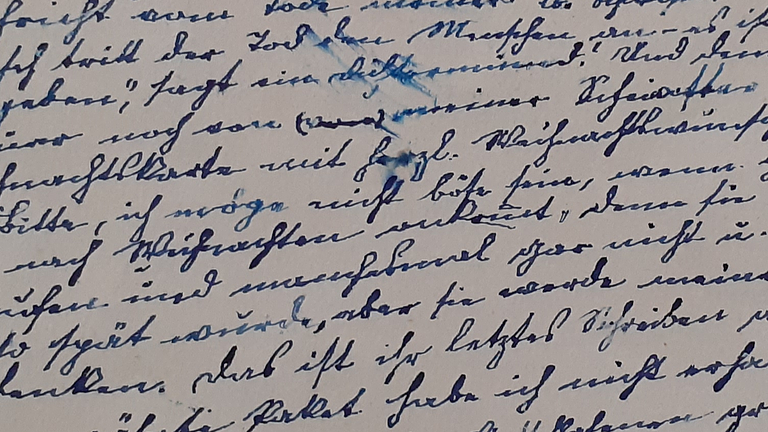 vom Tode meiner
tritt der Tod den Menschen an – es ist
geben", sagt ein Dichtermund! Und dem
noch von (von) meiner Schwester
hnachtskarte mit herzl. Weihnachtswünsch
Bitte, ich möge nicht böse sein, wenn
nach Weihnachten ankommt, denn sie
ufen und manchesmal gar nicht u.
so spät würde, aber sie werde meine
denken. Das ist ihr letztes Schreiben
Paket habe ich nicht erha